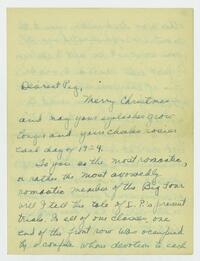 Dearest Peg,
Merry Christmas
and may your eyelashes grow
longer and your cheeks rosier
each day of 1929.
To you as the most romantic,
or rather the most avowedly
romantic member of the Big Four
will I tell the tale of I. P.'s present
trials. In all of our classes, one
end of the front row was occupied
by a couple whose devotion to each